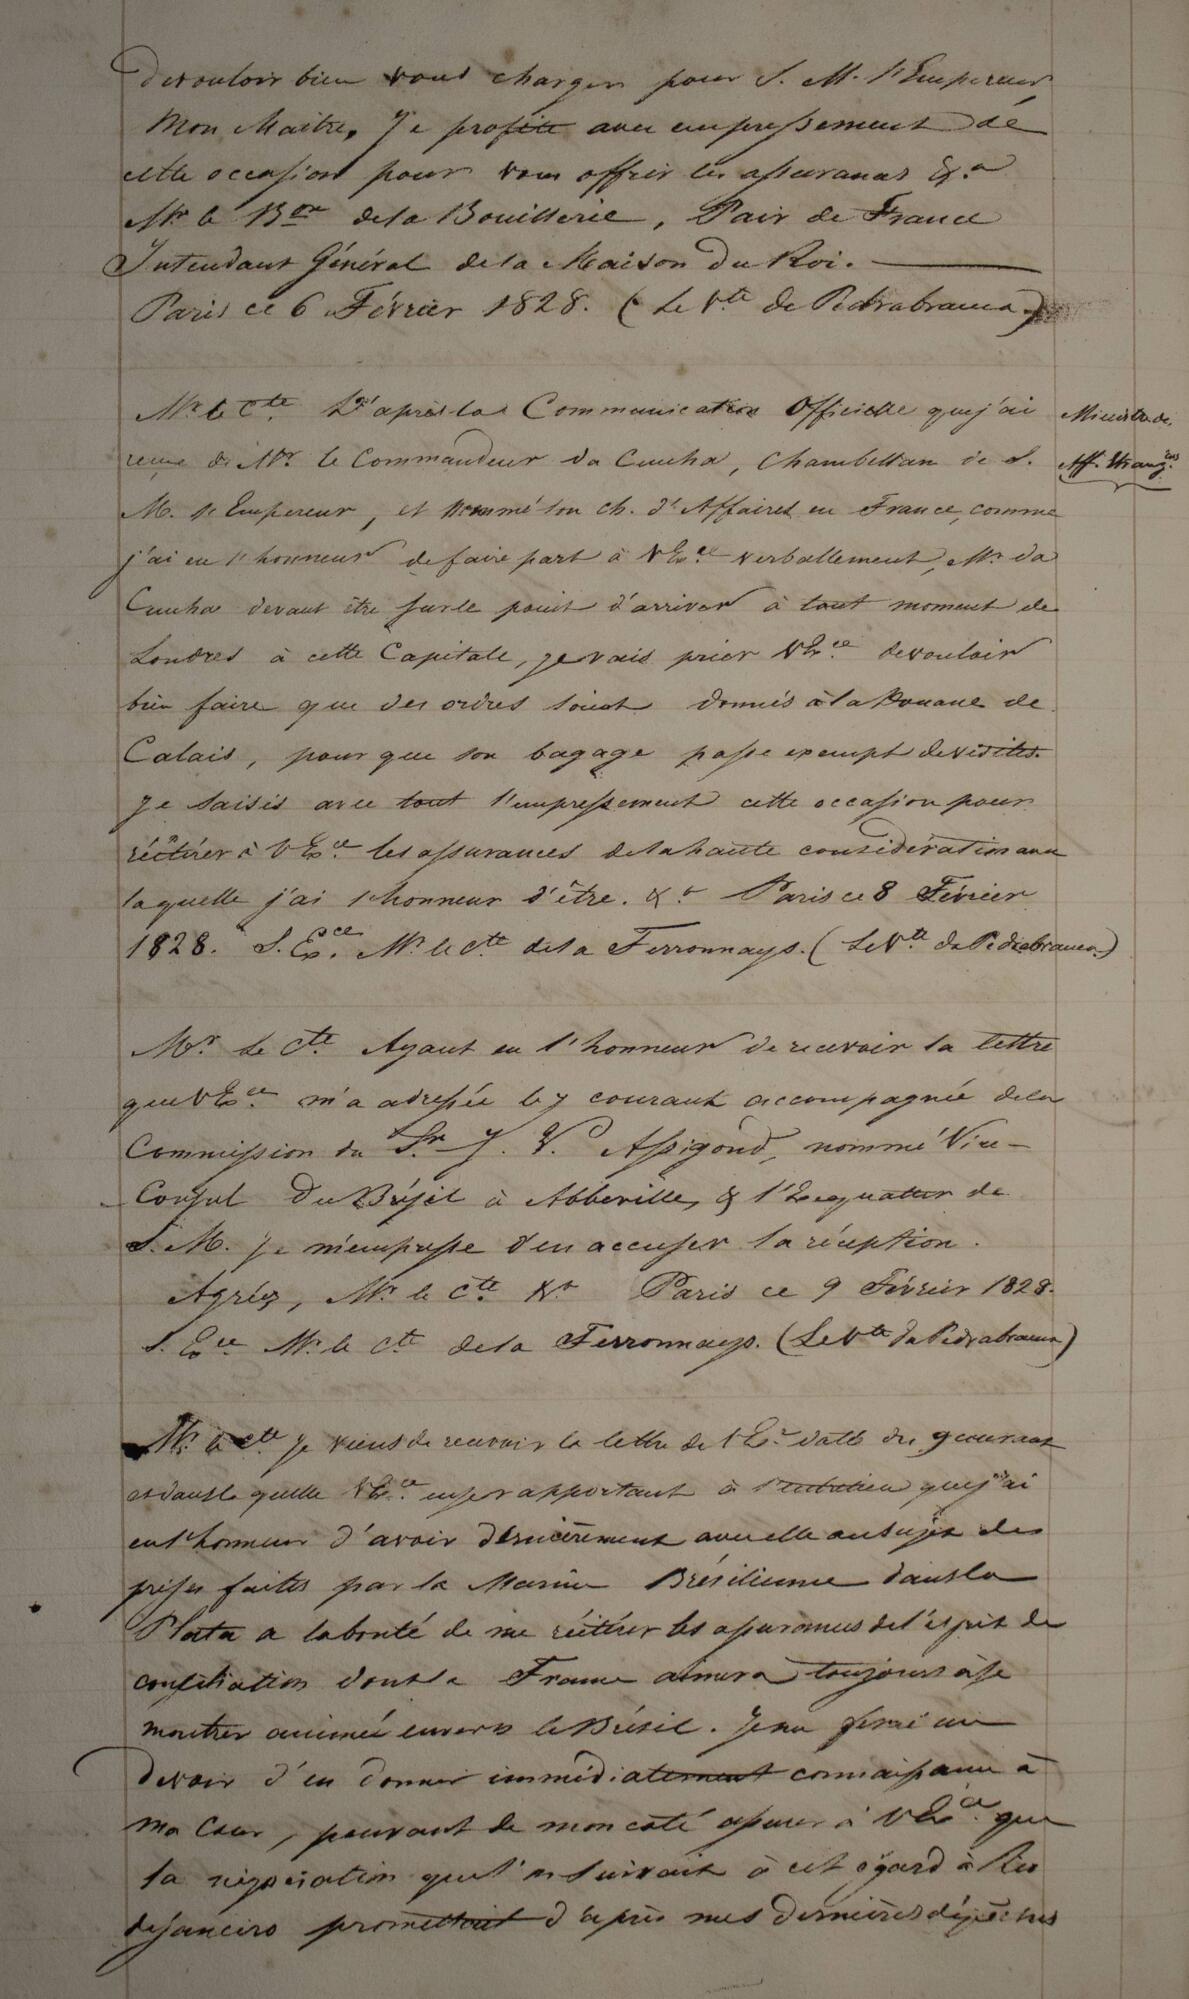 devouloir bien vous charger pour S. M. l'Empereur
Mon Maitre, Je profite avec empressement de
cette occasion pour vous offrir les assurances &.a
Mr le Bon de la Bouillerie, Pair de France
Intendant Général de la Maison du Roi.
Paris ce 6 Février 1828. (Le V.te de Pedrabranca)
Mr. le Cte. D'après la Communication Officielle que j'ai
Ministre des
reçue de Mr. le Commandeur da Cunha, Chambellan de S.
Aff. Etrangères
M. l'Empereur, et nommé son ch. d'Affaires en France, comme
j'ai eu l'honneur de faire part à V Ex.ce verballement, Mr. da
Cunha devant être sur le point d'arriver à tout moment de
Londres à cette Capitale, je vais prier V Ex.ce de vouloir
bien faire que des ordres soient donnés à la Douane de
Calais, pour que son bagage passe exempt de visites.
Je saisis avec tout l'empressement cette occasion pour
réitérer à V Ex.ce les assurances de la haute considération avec
laquelle j'ai l'honneur d'être. &.a Paris ce 8 Février
1828. S. Ex.ce Mr. le Cte de la Ferronnays. (Le V.te da Pedrabranca)
Mr. Le Cte. Ayant eu l'honneur de recevoir la lettre
que V Ex.ce m'a adressée le 7 courant accompagnée de la
Commission du Sr. J. V. Assigond, nommé Vice-
Consul Du Brésil à Abbeville, & l'Exequatur de
S. M. Je m'empresse d'en accuser la réception.
Agréez, Mr. le Cte. &.a Paris ce 9 Février 1828.
S. Ex.ce Mr. le Cte. de la Ferronnays. (Le V.te da Pedrabranca)
Mr. le Cte Je viens de recevoir la lettre de V Ex.ce datté du 9 courant
et dans la quelle V Ex.ce en se rapportant à l'entretien que j'ai
eu l'honneur d'avoir dernièrement avec elle au sujet des
prises faites par la Marine Brésilienne dans la
Plata a la bonté de me réitérer les assurances de l'esprit de
conciliation dont la France aimera toujours à se
montrer animée envers le Brésil. Je me ferai un
devoir d'en donner immédiatement connaissance à
ma Cour, pouvant de mon coté assurer à V Ex.ce que
la négociation que l'on suivait à cet égard à Rio
de Janeiro promettait d'après mes dernières dépêches